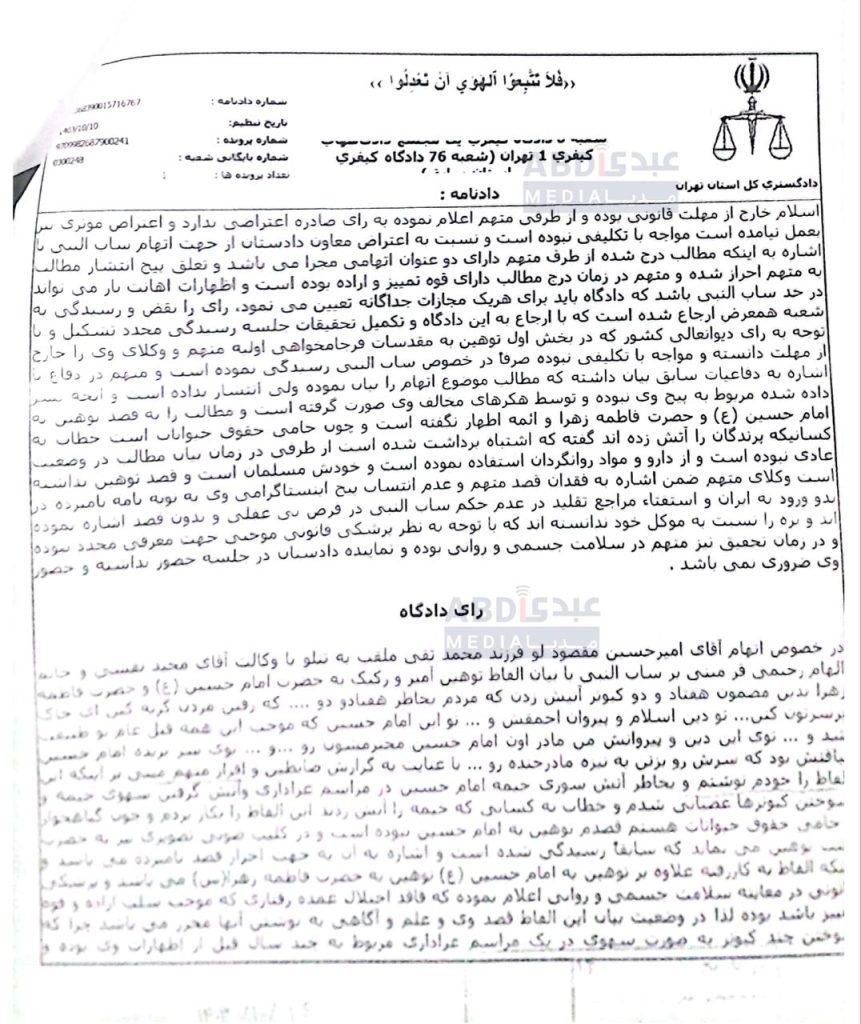 «فَلاَ تَتَّبِعوُا اَلهَوَي اَنْ تَعْدِلُوا»
شماره دادنامه :
390015716767
تاریخ تنظیم :
1403/10/10
شماره پرونده :
9709982687900241
شماره بایگانی شعبه :
0300248
تعداد پرونده ها :
کیفري 1 تهران (شعبه 76 دادگاه کیفري
دادگستري کل استان تهران
دادنامه :
اسلام خارج از مهلت قانونی بوده و از طرفی متهم اعلام نموده به رای صادره اعتراضی ندارد و اعتراض موثری نیز
بعمل نیامده است مواجه با تکلیفی نبوده است و نسبت به اعتراض معاون دادستان از جهت اتهام ساب النبی با
اشاره به اینکه مطالب درج شده از طرف متهم دارای دو عنوان اتهامی مجزا می باشد و تعلق پیج انتشار مطالب
به متهم احراز شده و متهم در زمان درج مطالب دارای قوه تمییز و اراده بوده است و اظهارات اهانت بار می تواند
در حد ساب النبی باشد که دادگاه باید برای هریک مجازات جداگانه تعیین می نمود، رای را نقض و رسیدگی به
شعبه همعرض ارجاع شده است که با ارجاع به این دادگاه و تکمیل تحقیقات جلسه رسیدگی مجدد تشکیل و با
توجه به رای دیوانعالی کشور که در بخش اول توهین به مقدسات فرجامخواهی اولیه متهم و وکلای وی را خارج
از مهلت دانسته و مواجه با تکلیفی نبوده صرفا در خصوص ساب النبی رسیدگی نموده است و متهم در دفاع با
اشاره به دفاعیات سابق بیان داشته که مطالب موضوع اتهام را بیان نموده ولی انتشار نداده است و آنچه نشر
داده شده مربوط به پیج وی نبوده و توسط هکرهای مخالف وی صورت گرفته است و مطالب را به قصد توهین به
امام حسین (ع) و حضرت فاطمه زهرا و ائمه اظهار نگفته است و چون حامی حقوق حیوانات است خطاب به
کسانیکه پرندگان را آتش زده اند گفته که اشتباه برداشت شده است از طرفی در زمان بیان مطالب در وضعیت
عادی نبوده است و از دارو و مواد روانگردان استفاده نموده است و خودش مسلمان است و قصد توهین نداشته
است وکلای متهم ضمن اشاره به فقدان قصد متهم و عدم انتساب پیج اینستاگرامی وی به توبه نامه نامبرده در
بدو ورود به ایران و استفتاء مراجع تقلید در عدم حکم ساب النبی در فرض بی عقلی و بدون قصد اشاره نموده
اند و بزه را نسبت به موکل خود ندانسته اند که با توجه به نظر پزشکی قانونی موجبی جهت معرفی مجدد نبوده
و در زمان تحقیق نیز متهم در سلامت جسمی و روانی بوده و نماینده دادستان در جلسه حضور نداشته و حضور
وی ضروری نمی باشد .
رای دادگاه
در خصوص اتهام آقای امیرحسین مقصود لو فرزند محمد تقی ملقب به تتلو با وکالت آقای مجید نقشی و خانم
الهام رحیمی فر مبنی بر ساب النبی با بیان الفاظ توهین آمیز و رکیک به حضرت امام حسین (ع) و حضرت فاطمه
زهرا بدین مضمون هفتاد و دو کبوتر آتیش زدن که مردم بخاطر هفتادو دو .... که رفتن مردن گریه کنن ای خاک
برسرتون کنن... تو دین اسلام و پیروان احمقش و ... تو این امام حسین که موجب این همه قتل عام تو طبیعت
شد و ... توی این دین و پیروانش من مادر اون امام حسین محترمتون رو ...و ... توی سر بریده امام حسین
لیاقتش بود که سرش رو بزنن به نیزه مادرجنده رو ... با عنایت به گزارش ضابطین و اقرار متهم مبنی بر اینکه این
الفاظ را خودم نوشتم و بخاطر آتش سوری خیمه امام حسین در مراسم عزاداری وآتش گرفتن سهوی خیمه و
سوختن کبوترها عصبانی شدم و خطاب به کسانی که خیمه را آتش زدند این الفاظ را بکار بردم و چون گیاهخوار
حامی حقوق حیوانات هستم قصدم توهین به امام حسین نبوده است و در کلیپ صوتی تصویری نیز به حضرت
توهین می نماید که سابقا رسیدگی شده است و اشاره به آن به جهت احراز قصد نامبرده می باشد و
اینکه الفاظ به کاررفته علاوه بر توهین به امام حسین (ع) توهین به حضرت فاطمه زهرا(س) می باشد و پزشکی
قانونی در معاینه سلامت جسمی و روانی اعلام نموده که فاقد اختلال عمده رفتاری که موجب سلب اراده و قوه
تمییز باشد بوده لذا در وضعیت بیان این الفاظ قصد وی و علم و آگاهی به نوشتن آنها محرز می باشد چرا که
سوختن چند کبوتر به صورت سهوی در یک مراسم عزاداری مربوط به چند سال قبل از اظهارات وی بوده و
عبدی ABDI
مدیا MEDIA
عبدی ABDI
مدیا MEDIA